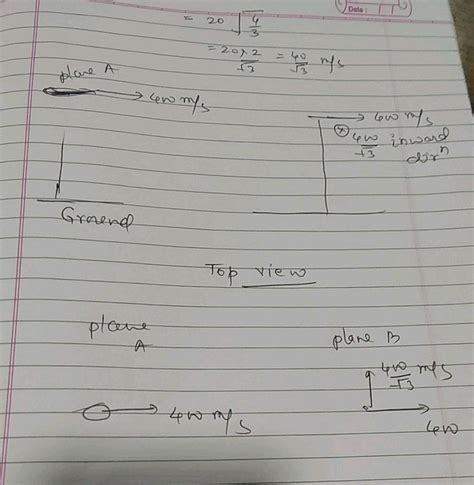 Date :
= 20 √4/3
= 20×2/√3 = 40/√3 m/s
plane A
400 m/s
400 m/s
ⓧ 400/√3 inward
dirⁿ
Ground
Top view
plane
A
plane B
400/√3 m/s
400 m/s
400